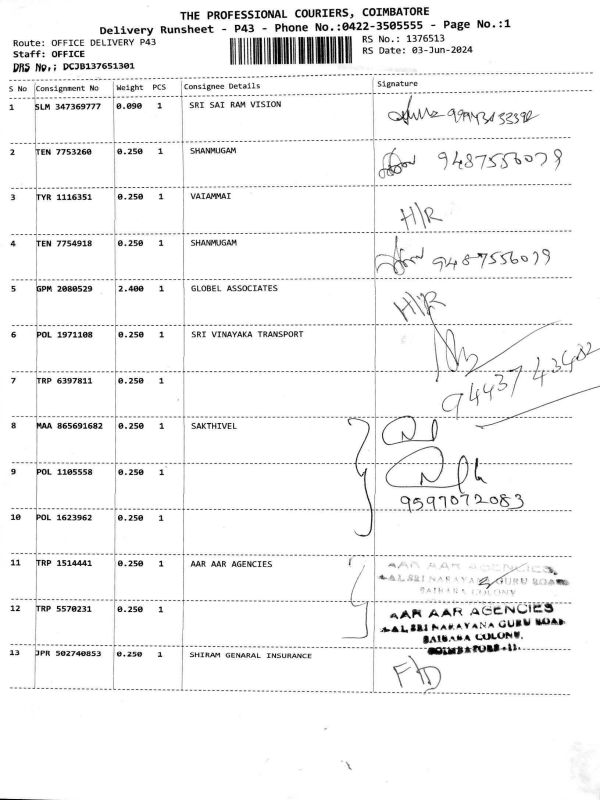 THE PROFESSIONAL COURIERS, COIMBATORE
Delivery Runsheet - P43 - Phone No.:0422-3505555 - Page No.:1
Route: OFFICE DELIVERY P43
RS No.: 1376513
Staff: OFFICE
RS Date: 03-Jun-2024
DRS No.: DCJB137651301
S No Consignment No Weight PCS Consignee Details Signature
1 SLM 347369777 0.090 1 SRI SAI RAM VISION
2 TEN 7753260 0.250 1 SHANMUGAM 9487556079
3 TYR 1116351 0.250 1 VAIAMMAI H/R
4 TEN 7754918 0.250 1 SHANMUGAM 9487556079
5 GPM 2080529 2.400 1 GLOBEL ASSOCIATES H/R
6 POL 1971108 0.250 1 SRI VINAYAKA TRANSPORT
7 TRP 6397811 0.250 1
8 MAA 865691682 0.250 1 SAKTHIVEL
9 POL 1105558 0.250 1 9597072083
10 POL 1623962 0.250 1
11 TRP 1514441 0.250 1 AAR AAR AGENCIES AAR AAR AGENCIES,
4-A1, SRI NARAYANA GURU ROAD
SAIBABA COLONY
12 TRP 5570231 0.250 1 AAR AAR AGENCIES
4-A1, SRI NARAYANA GURU ROAD
SAIBABA COLONY,
COIMBATORE-11.
13 JPR 502740853 0.250 1 SHIRAM GENARAL INSURANCE